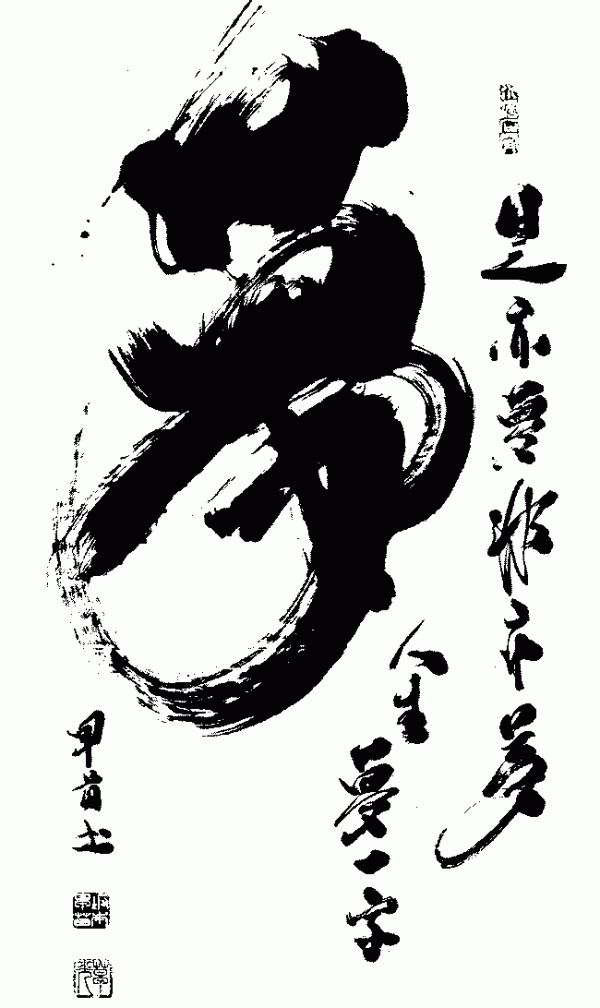 夢
是亦夢非亦夢
人生
夢一字